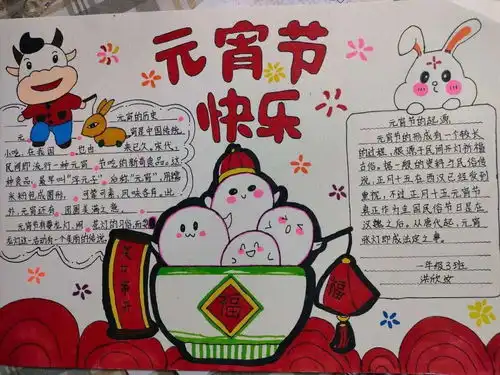 元宵节
快乐
元宵的历史
元宵是中国传统
小吃,在我国 由来已久,宋代,
民间即流行一种元宵节吃的新奇食品。这
种食品,最早叫“浮元子”
米粉包成圆形, 可荤可素,风味各异,
外,元宵还有团圆美满之意。
元宵节有舞龙灯、闹花灯的习俗,
龙灯这一活动有一个美丽的传说。
元宵节的起源
元宵节的形成有一个较长
的过程,根源于民间开灯祈福
古俗。据一般的资料与民俗传
说,正月十五在西汉已经受到
重视,不过正月十五元宵节
真正作为全国民俗节日是在
汉魏之后。从唐代起,元宵
张灯即成法定之事。
一年级3班
洪欣
福
福